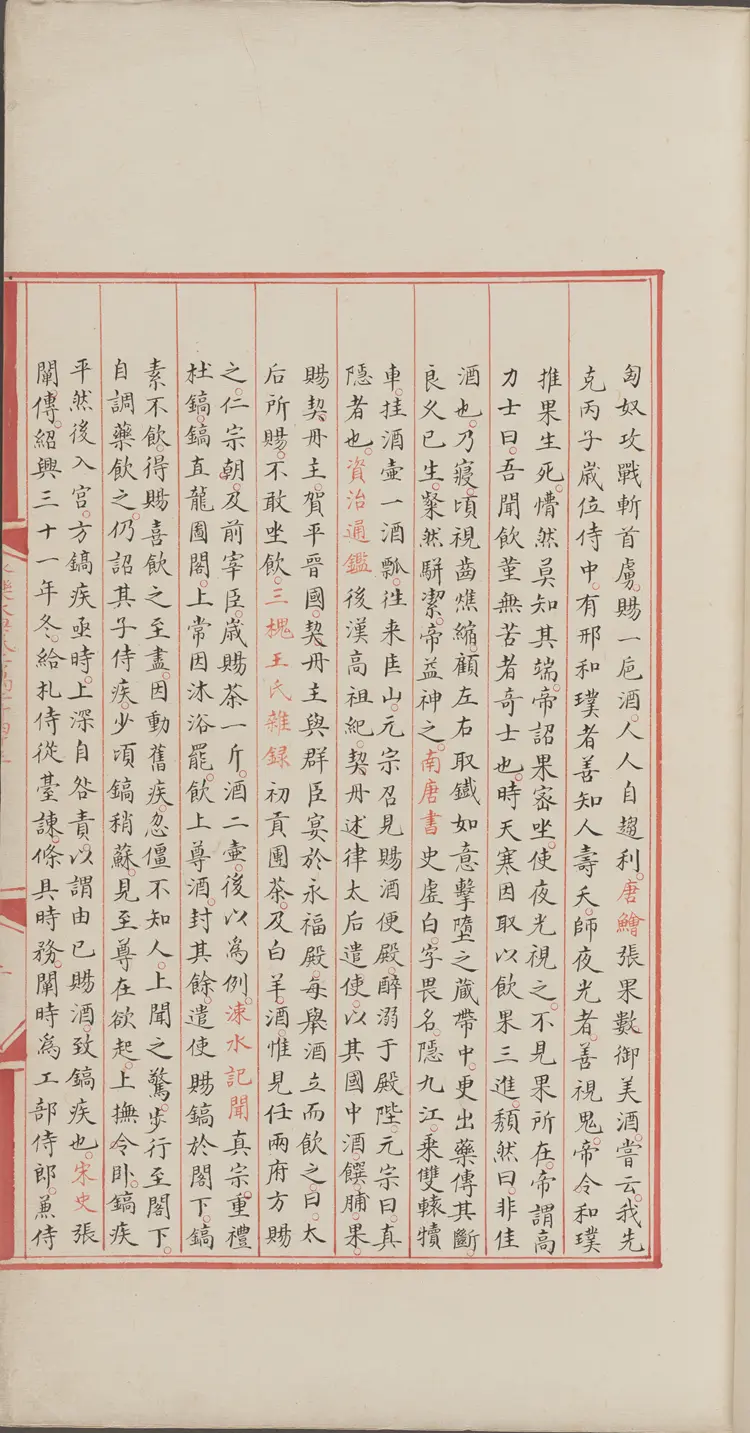 匈奴攻戰斬首虜。賜一巵酒。人人自趨利。唐鱠張果數御美酒。嘗云。我先
克丙子歲位侍中。有邢和璞者善知人壽夭。師夜光者。善視鬼。帝令和璞
推果生死。懵然莫知其端。帝詔果密坐。使夜光視之。不見果所在。帝謂高
力士曰。吾聞飲堇無苦者奇士也。時天寒因取以飲果三進。頹然曰。非佳
酒也。乃寢。頃視齒燋縮。顧左右取鐵如意擊墮之。藏帶中。更出藥傅其齗。
良久已生。粲然駢潔。帝益神之。南唐書史虛白。字畏名。隱九江。乘雙轅犢
車。挂酒壷一酒瓢。徃来匡山。元宗召見賜酒便殿。醉溺于殿陛。元宗曰。真
隱者也。資治通鑑後漢高祖紀。契丹述律太后遣使。以其國中酒。饌。脯。果。
賜契丹主。賀平晉國。契丹主與群臣宴於永福殿。每舉酒立而飲之。曰。太
后所賜。不敢坐飲。三槐王氏雜録初貢團茶。及白羊酒。惟見任兩府方賜
之。仁宗朝。及前宰臣。歲賜茶一斤。酒二壷。後以爲例。涑水記聞真宗。重禮
杜鎬。鎬直龍圖閣。上常因沐浴罷。飲上尊酒。封其餘。遣使賜鎬於閣下。鎬
素不飲。得賜喜飲之至盡。因動舊疾。忽僵不知人。上聞之驚。步行至閣下。
自調藥飲之。仍詔其子侍疾。少頃鎬稍蘇。見至尊在欲起。上撫令卧。鎬疾
平然後入宫。方鎬疾亟時。上深自咎責。以謂由已賜酒。致鎬疾也。宋史張
闡傳。紹興三十一年冬。給札侍從臺諫。條具時務。闡時爲工部侍郎。兼侍